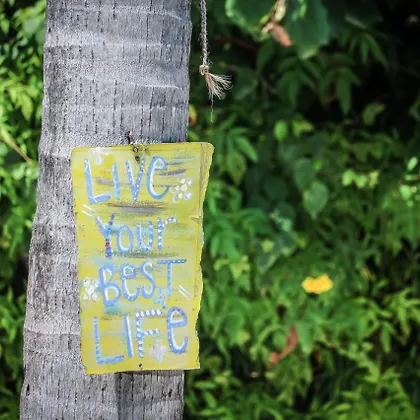 LIVe
YOUr
BeST
LIFe